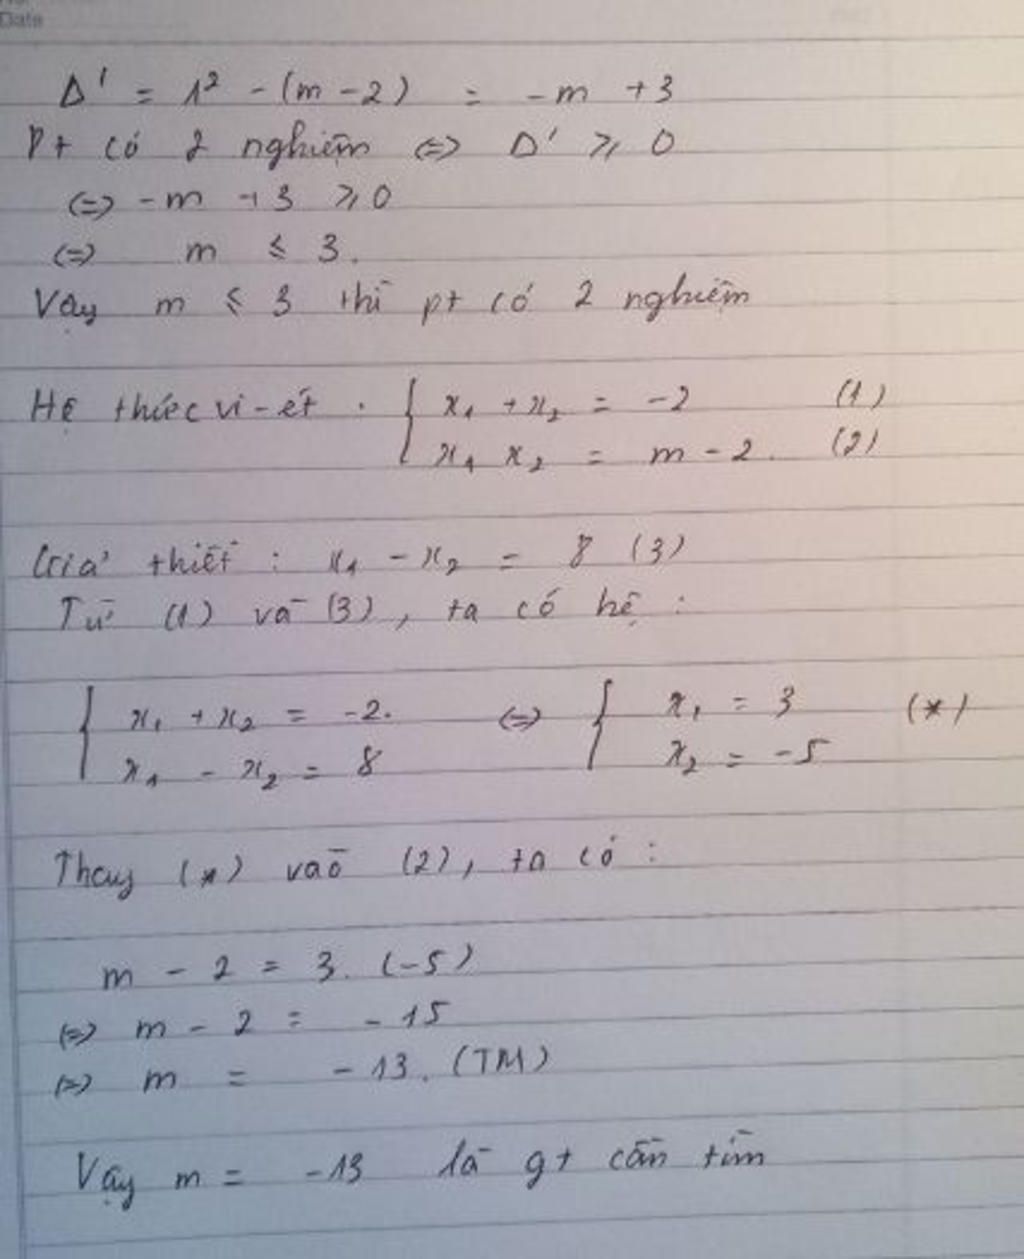 Date
Δ' = 1² - (m - 2) = -m + 3
Pt có 2 nghiệm <=> Δ' ≥ 0
<=> -m + 3 ≥ 0
<=> m ≤ 3.
Vậy m ≤ 3 thì pt có 2 nghiệm
Hệ thức vi-ét . { x₁ + x₂ = -2 (1)
x₁ x₂ = m - 2. (2)
Giả thiết : x₁ - x₂ = 8 (3)
Từ (1) và (3), ta có hệ :
{ x₁ + x₂ = -2. <=> { x₁ = 3 (*)
x₁ - x₂ = 8 x₂ = -5
Thay (*) vào (2), ta có :
m - 2 = 3. (-5)
<=> m - 2 = -15
<=> m = -13. (TM)
Vậy m = -13 là gt cần tìm